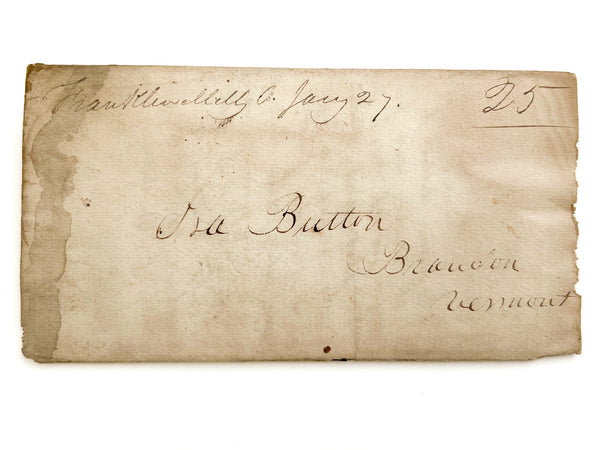 Franklin Mills O. Jany 27.
25
Ira Button
Brandon
Vermont